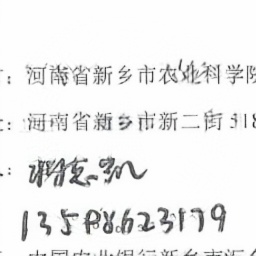 ：河南省新乡市农业科学院
：河南省新乡市新二街318
：
13598623179
中国农业银行新乡市汇